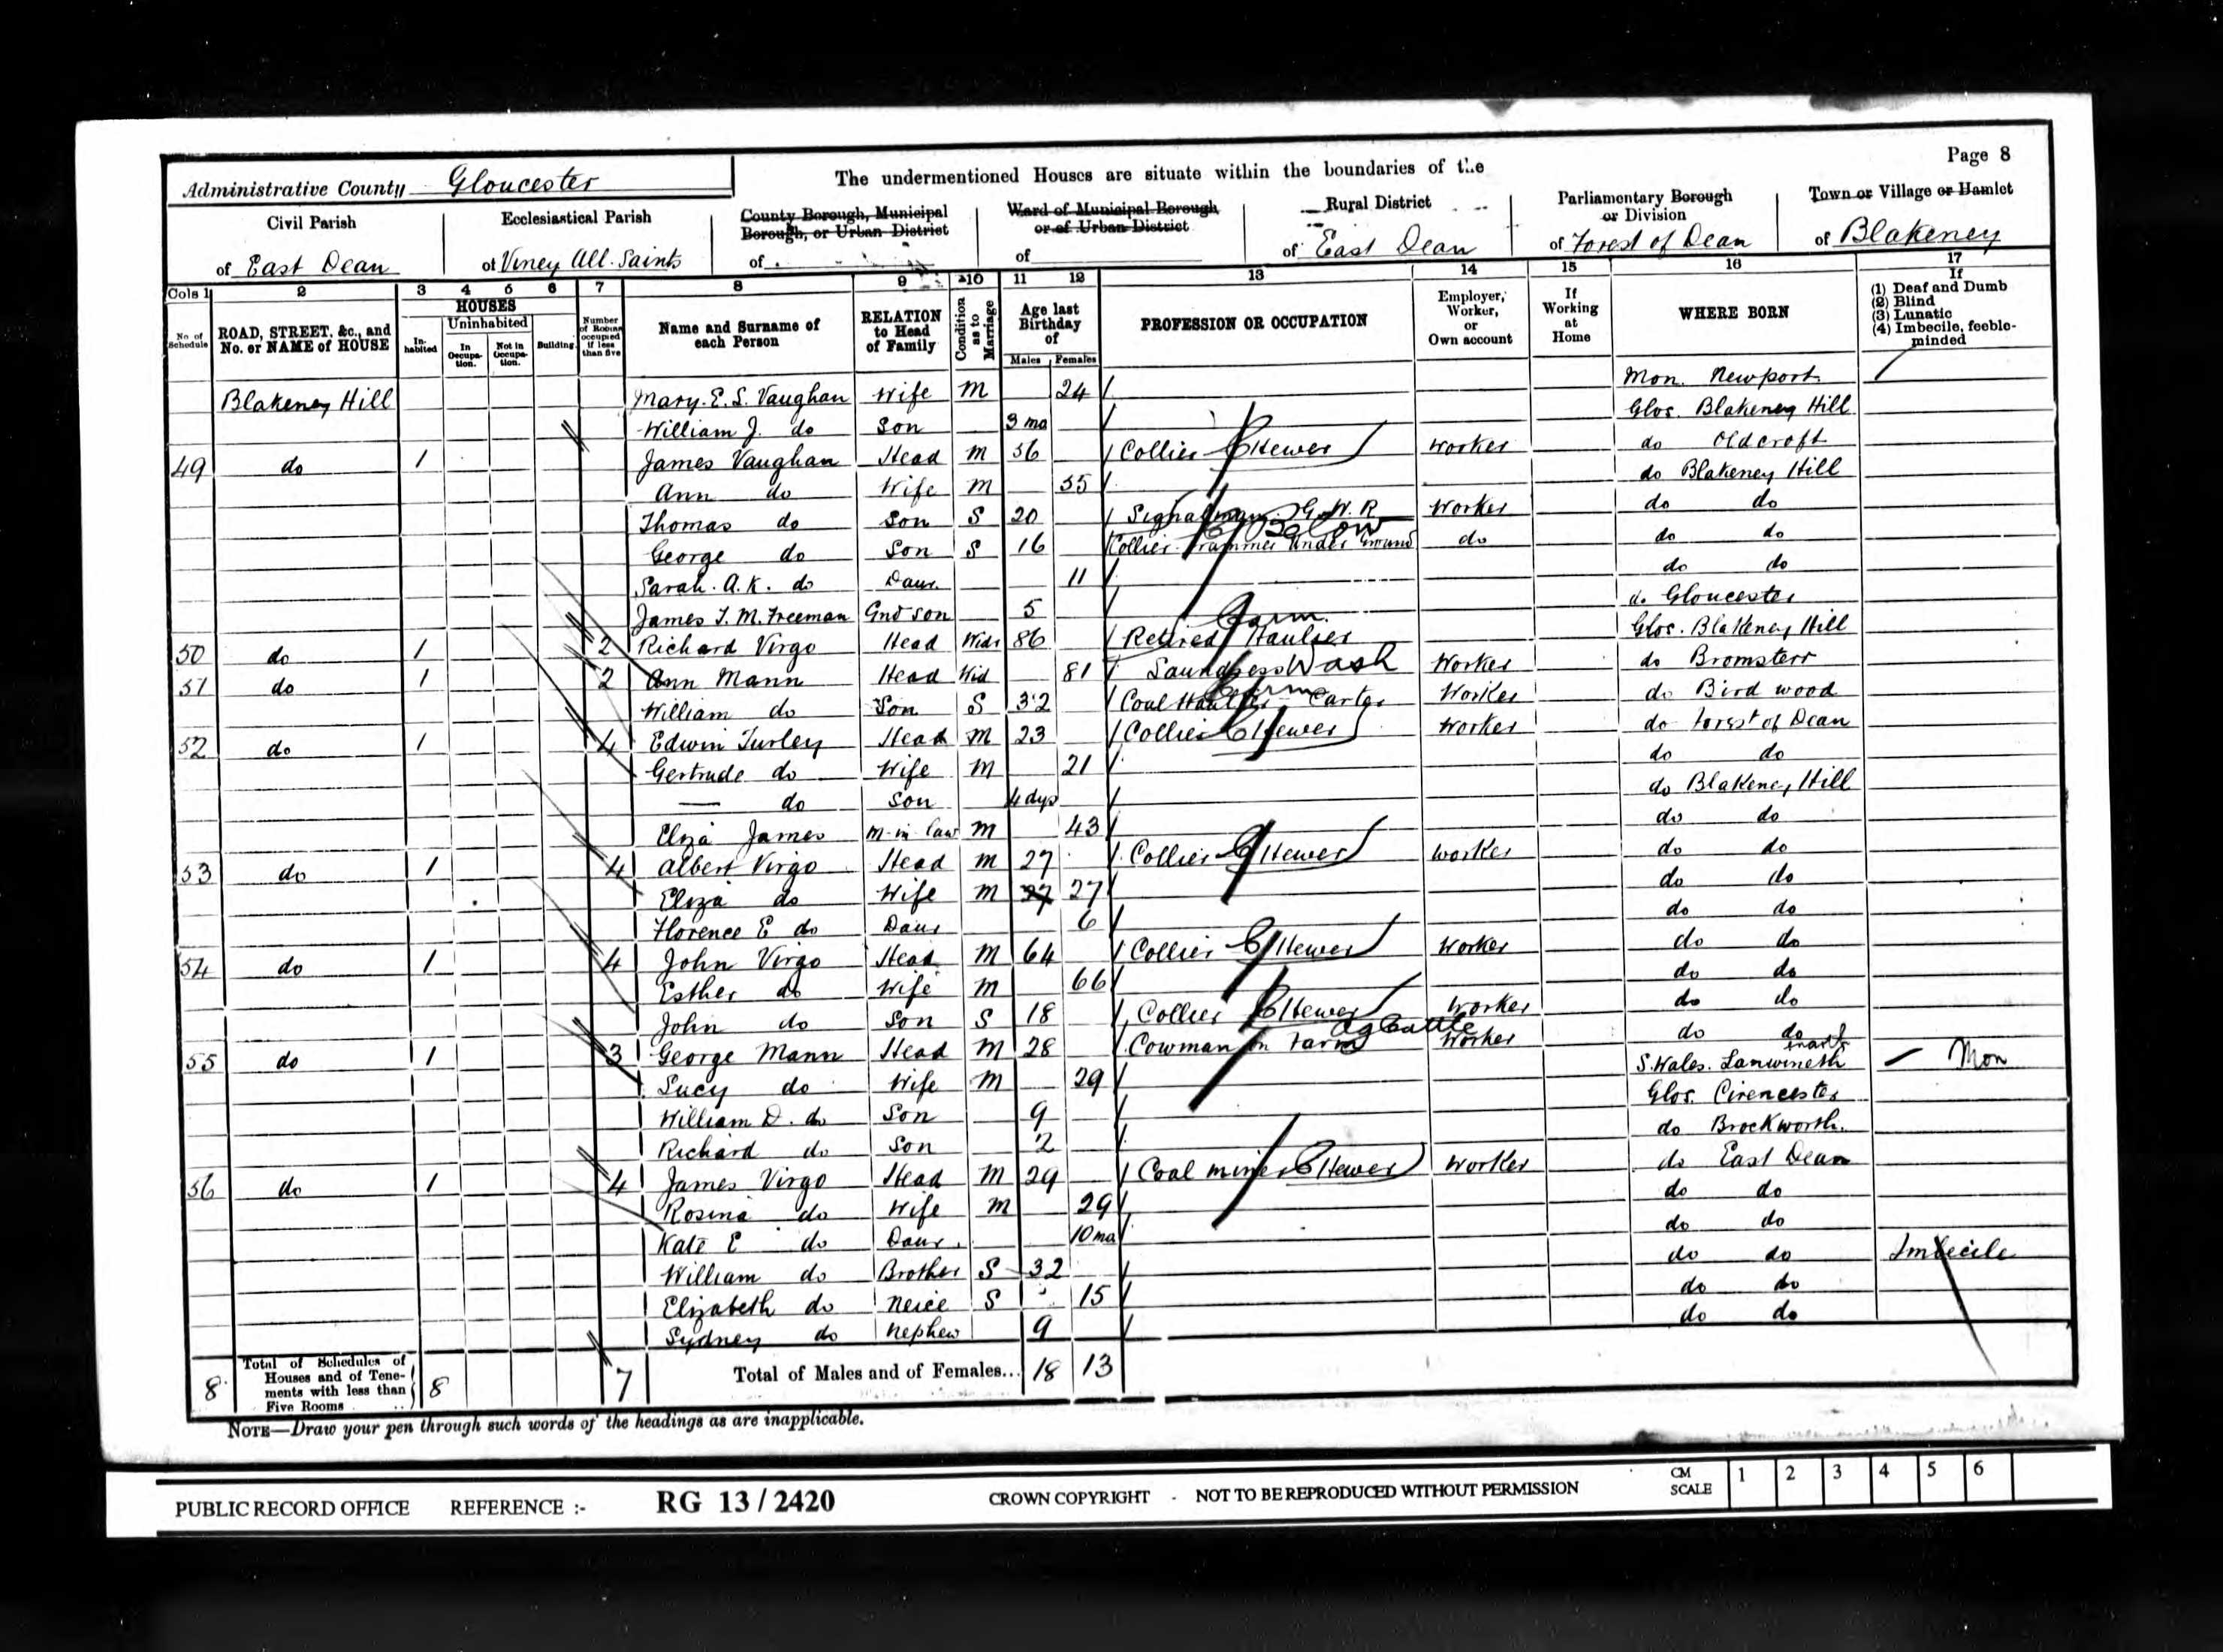 Page 8
Administrative County Gloucester
The undermentioned Houses are situate within the boundaries of the
Civil Parish
of East Dean
Ecclesiastical Parish
of Viney All Saints
County Borough, Municipal
Borough, or Urban District
of
Ward of Municipal Borough
or of Urban District
of
Rural District
of East Dean
Parliamentary Borough
or Division
of Forest of Dean
Town or Village or Hamlet
of Blakeney
Cols 1 2 3 4 5 6 7 8 9 10 11 12 13 14 15 16 17
No. of Schedule
ROAD, STREET, &c., and No. or NAME of HOUSE
HOUSES
In-habited
Uninhabited
In Occupa-tion.
Not in Occupa-tion.
Building
Number of Rooms occupied if less than five
Name and Surname of each Person
RELATION to Head of Family
Condition as to Marriage
Age last Birthday of
Males Females
PROFESSION OR OCCUPATION
Employer, Worker, or Own account
If Working at Home
WHERE BORN
If
(1) Deaf and Dumb
(2) Blind
(3) Lunatic
(4) Imbecile, feeble-minded
Blakeney Hill Mary. E. S. Vaughan Wife M 24 Mon. Newport
William J. do Son 3 mo Glos. Blakeney Hill
49 do 1 James Vaughan Head M 56 Collier Hewer Worker do Oldcroft
Ann do Wife M 55 do Blakeney Hill
Thomas do Son S 20 Signalman G.W.R Worker do do
George do Son S 16 Collier Trammer Under Ground do do do
Below
Sarah. A. K. do Daur. 11 do do
James T. M. Freeman Gnd son 5 do Gloucester
50 do 1 2 Richard Virgo Head Widr 86 Retired Haulier Glos. Blakeney Hill
51 do 1 2 Ann Mann Head Wid 81 Laundress Wash Worker do
William do Son S 32 Coal Haulier Carter Worker do Bird wood
52 do 1 4 Edwin Turley Head M 23 Collier Hewer Worker do Forest of Dean
Gertrude do Wife M 21 do do
— do Son 4 dys do Blakeney Hill
Eliza James M-in law M 43 do do
53 do 1 4 Albert Virgo Head M 27 Collier Hewer Worker do do
Eliza do Wife M 27 27 do do
Florence E do Daur 6 do do
54 do 1 4 John Virgo Head M 64 Collier Hewer Worker do do
Esther do Wife M 66 do do
John do Son S 18 Collier Hewer Worker do do
55 do 1 3 George Mann Head M 28 Cowman on Farm Cattle Worker do do
Lucy do Wife M 29 S. Wales. Mon
William D. do Son 9 Glos. Cirencester
Richard do Son 2 do Brockworth.
56 do 1 4 James Virgo Head M 29 Coal miner Hewer Worker do East Dean
Rosina do Wife M 29 do do
Kate E do Daur. 10 mo do do
William do Brother S 32 do do Imbecile
Elizabeth do Neice S 15 do do
Sydney do Nephew 9 do do
8 Total of Schedules of Houses and of Tene-ments with less than Five Rooms 8 7 Total of Males and of Females... 18 13
NOTE—Draw your pen through such words of the headings as are inapplicable.
PUBLIC RECORD OFFICE REFERENCE :- RG 13 / 2420 CROWN COPYRIGHT - NOT TO BE REPRODUCED WITHOUT PERMISSION CM SCALE 1 2 3 4 5 6